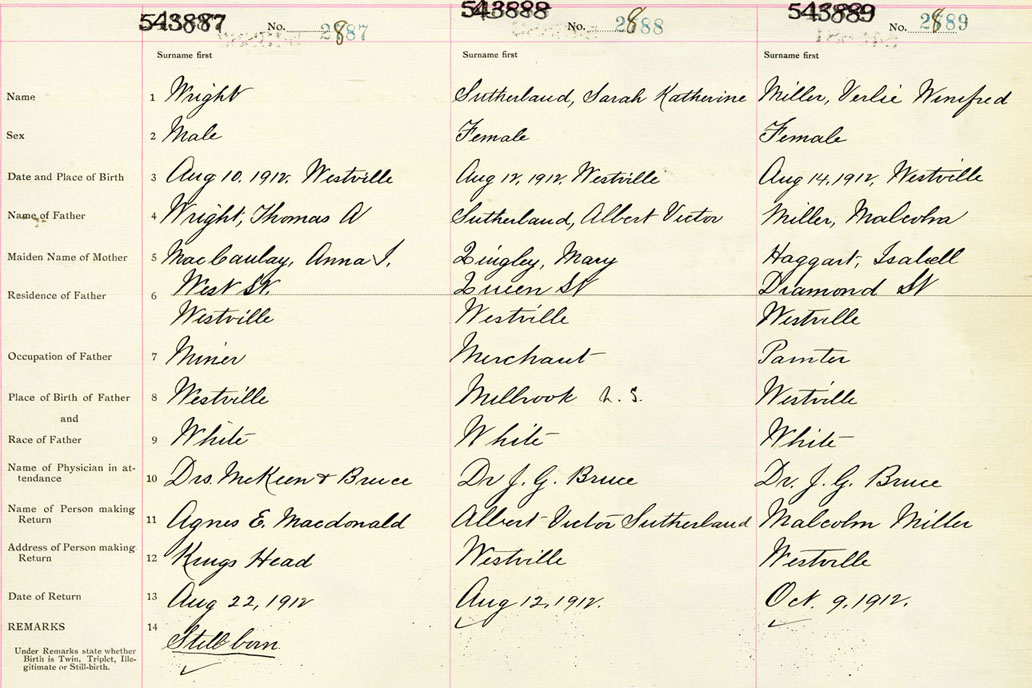 543887 No. 2887 543888 No. 2888 543889 No. 2889
Surname first Surname first Surname first
Name 1 Wright Sutherland, Sarah Katherine Miller, Verlie Winifred
Sex 2 Male Female Female
Date and Place of Birth 3 Aug 10, 1912, Westville Aug 12, 1912, Westville Aug 14, 1912, Westville
Name of Father 4 Wright, Thomas A Sutherland, Albert Victor Miller, Malcolm
Maiden Name of Mother 5 MacCaulay, Anna J. Zingley, Mary Haggart, Isabell
Residence of Father 6 West St. Queen St Diamond St
Westville Westville Westville
Occupation of Father 7 Miner Merchant Painter
Place of Birth of Father 8 Westville Melbrook N.S. Westville
and
Race of Father 9 White White White
Name of Physician in at-
tendance 10 Drs. McKeen & Bruce Dr J. G. Bruce Dr. J. G. Bruce
Name of Person making
Return 11 Agnes E. Macdonald Albert Victor Sutherland Malcolm Miller
Address of Person making
Return 12 Kings Head Westville Westville
Date of Return 13 Aug 22, 1912 Aug 12, 1912. Oct. 9, 1912.
REMARKS 14
Still born
Under Remarks state whether
Birth is Twin, Triplet, Ille-
gitimate or Still-birth.